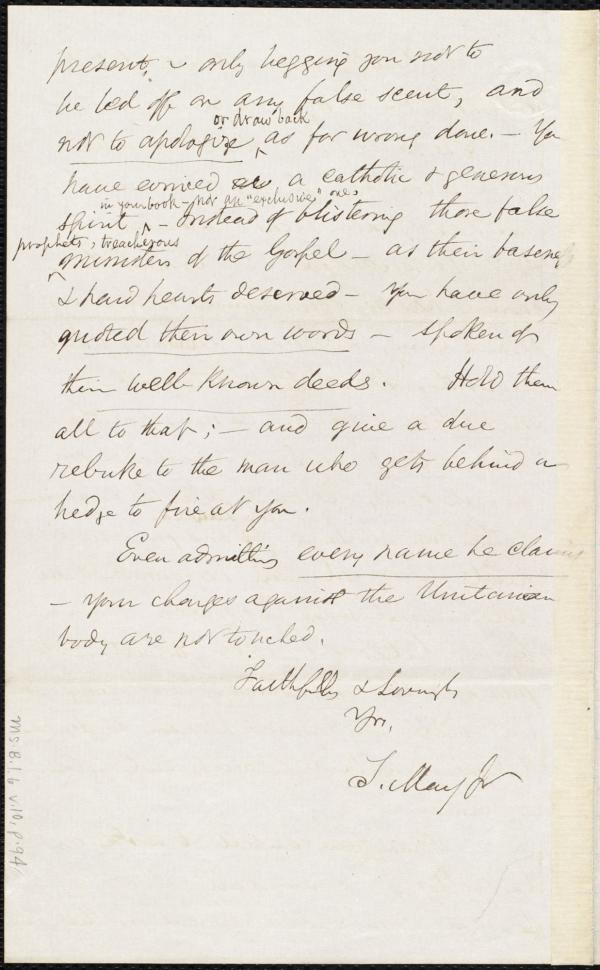 present, & only begging you not to
be led off on any false scent, and
or draw back
not to apologize ^ as for wrong done. — You
have evinced a catholic & generous
in your book – not an "exclusive" one,
spirit ^ – Instead of blistering those false
prophets, treacherous
^ ministers of the Gospel – as their baseness
& hard hearts deserved – you have only
quoted their own words – spoken of
their well-known deeds. Hold them
all to that; – and give a due
rebuke to the man who gets behind a
hedge to fire at you.
Even admitting every name he claims
– your charges against the Unitarian
body are not touched.
Faithfully & lovingly
Yrs,
S. May Jr
Ms. B.1.6 v.10, p.94